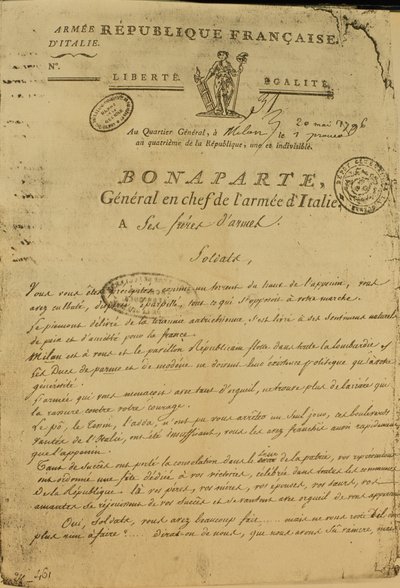 ARMÉE
D'ITALIE.
RÉPUBLIQUE FRANÇAISE.
N.º
LIBERTÉ.
ÉGALITÉ.
20 mai 1796
Au Quartier Général, à Milan le 1
au quatrième de la République, une et indivisible.
BONAPARTE,
Général en chef de l'armée d'Italie,
A Ses frères d'armes.
Soldats,
Vous vous êtes précipités comme un torrent du haut de l'apennin, vous
avez culbuté, dispersé, éparpillé, tout ce qui s'opposait à votre marche.
Le piemont délivré de la tirannie autrichienne, s'est livré à ses sentimens naturels
de paix et d'amitié pour la france.
Milan est à vous et le pavillon Républicain flotte dans toute la lombardie.
Les Ducs de parme et de modène ne doivent leur existence politique qu'à votre
générosité.
L'armée qui vous menaçait avec tant d'orgueil, ne trouve plus de barrière qui
la rassure contre votre courage.
Le pô, le tesin, l'adda, n'ont pu vous arrêter un seul jour, ces boulevards
vantés de l'Italie, ont été insuffisant, vous les avez franchis aussi rapidement
que l'appennin.
Tant de succès ont porté la consolation dans le sein de la patrie, vos représentans
ont ordonné une fête dédiée à vos victoires, célébrée dans toutes les communes
De la République. là vos pères, vos mères, vos épouses, vos sœurs, vos
amantes se réjouissent de vos succès et se vantent avec orgueil de vous appartenir
Oui, Soldats, vous avez beaucoup fait .... mais ne vous reste t-il donc
plus rien à faire? .... dira-t-on de nous, que nous avons su vaincre, mais